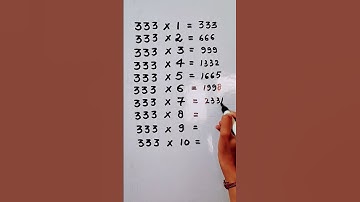 333 x 1 = 333
333 x 2 = 666
333 x 3 = 999
333 x 4 = 1332
333 x 5 = 1665
333 x 6 = 1998
333 x 7 = 2331
333 x 8 =
333 x 9 =
333 x 10 =